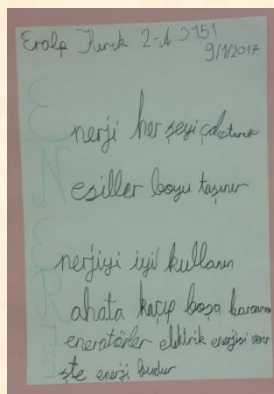 Eralp Kırık 2-A 3151
9/1/2017
Enerji her şeyi çalıştırır
Nesiller boyu taşınır
Enerjiyi iyi kullanın
Rahata kaçıp boşa harcama
Jeneratörler elektrik enerjisi verir
İşte enerji budur